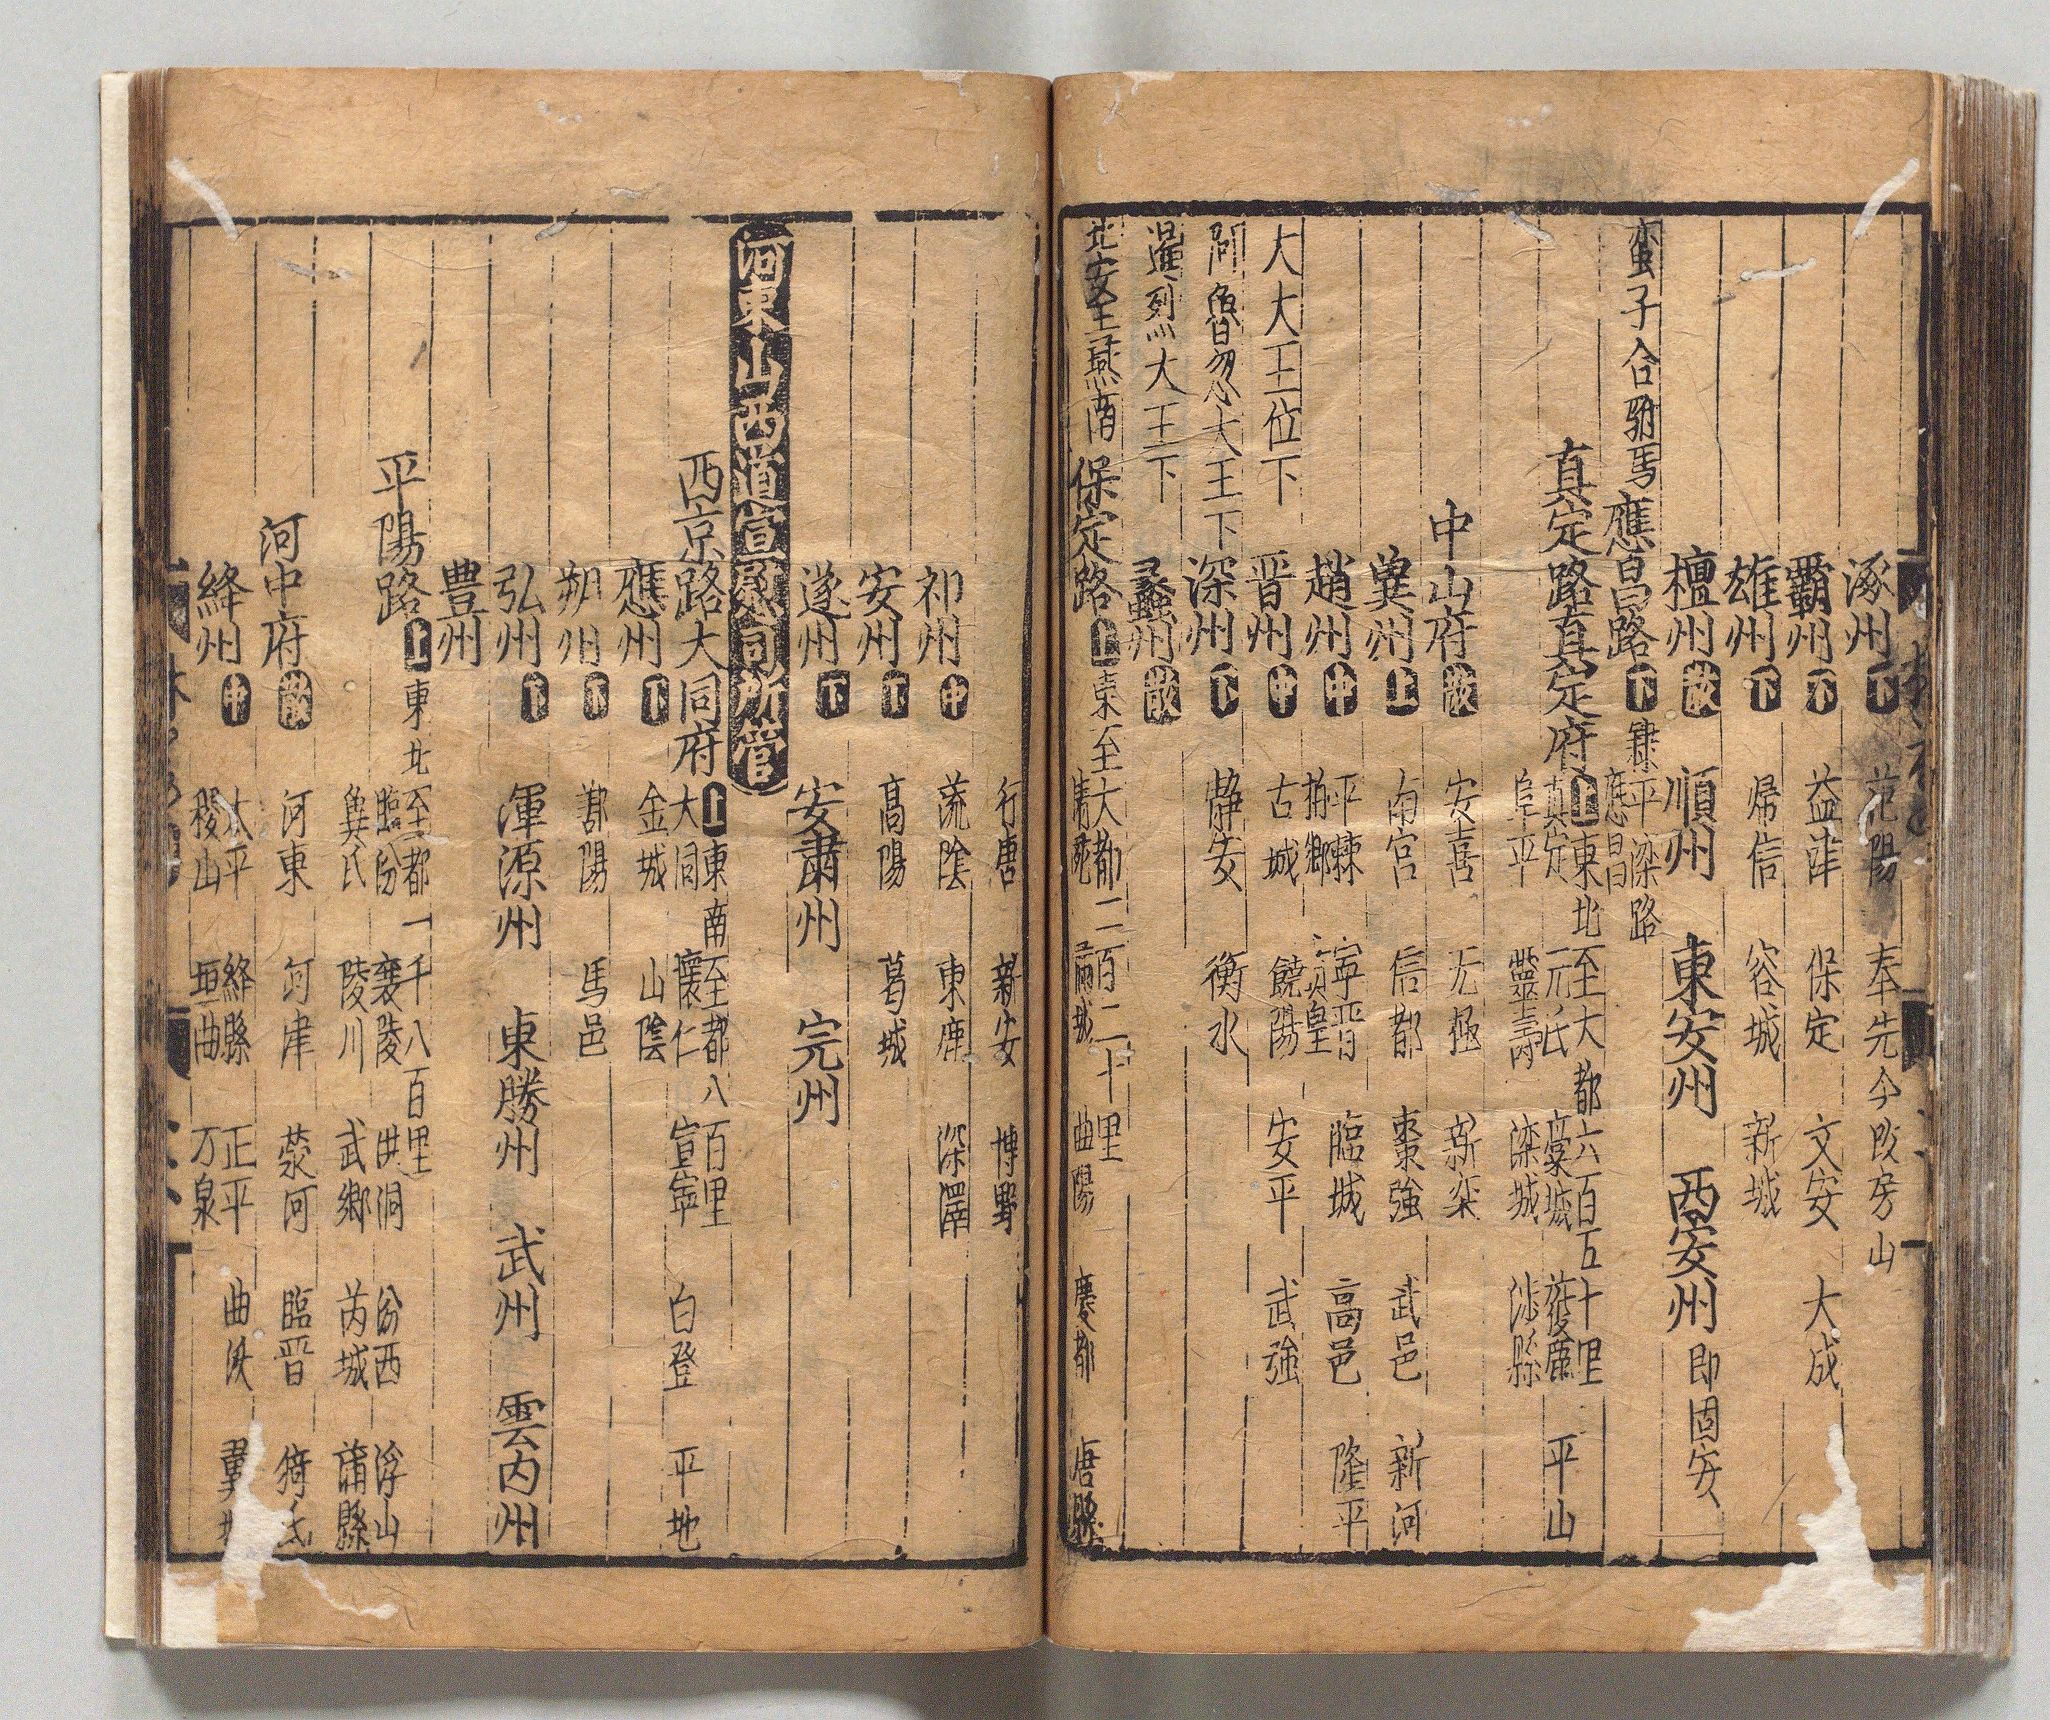 涿州 下 范陽 奉先今改房山
霸州 下 益津 保定 文安 大成
雄州 下 歸信 容城 新城
檀州 散 順州 東安州 西安州 即固安
蛮子台駙馬 應昌路 下 隸平灤路 應昌
真定路真定府 上 東北至大都六百五十里
真定 元氏 藁城 獲鹿 平山
阜平 靈壽 灤城 涉縣
中山府 散 安喜 无極 新栾
兾州 上 南宮 信都 棗強 武邑 新河
趙州 中 平棘 寧晋 臨城 高邑 隆平
栢鄉 賛皇
大大王位下 晋州 中 古城 饒陽 安平 武強
阿魯忽大王下 深州 下 静安 衡水
暹烈大王下 蠡州 散
北安王燕南 保定路 上 東至大都二百二十里
清苑 滿城 曲陽 慶都 唐縣
行唐 新安 博野
祁州 中 蒲陰 東鹿 深澤
安州 下 高陽 葛城
遂州 下 安肅州 完州
河東山西道宣慰司所管
西京路大同府 上 東南至都八百里
大同 懷仁 宣寧 白登 平地
應州 下 金城 山陰
朔州 下 鄯陽 馬邑
弘州 下 渾源州 東勝州 武州 雲内州
豊州
平陽路 上 東北至都一千八百里
臨汾 襄陵 洪洞 汾西 浮山
兾氏 陵川 武鄉 芮城 蒲縣
河中府 散 河東 河津 荥河 臨晋 猗氏
絳州 中 太平 絳縣 正平 曲沃 翼城
稷山 垣曲 万泉